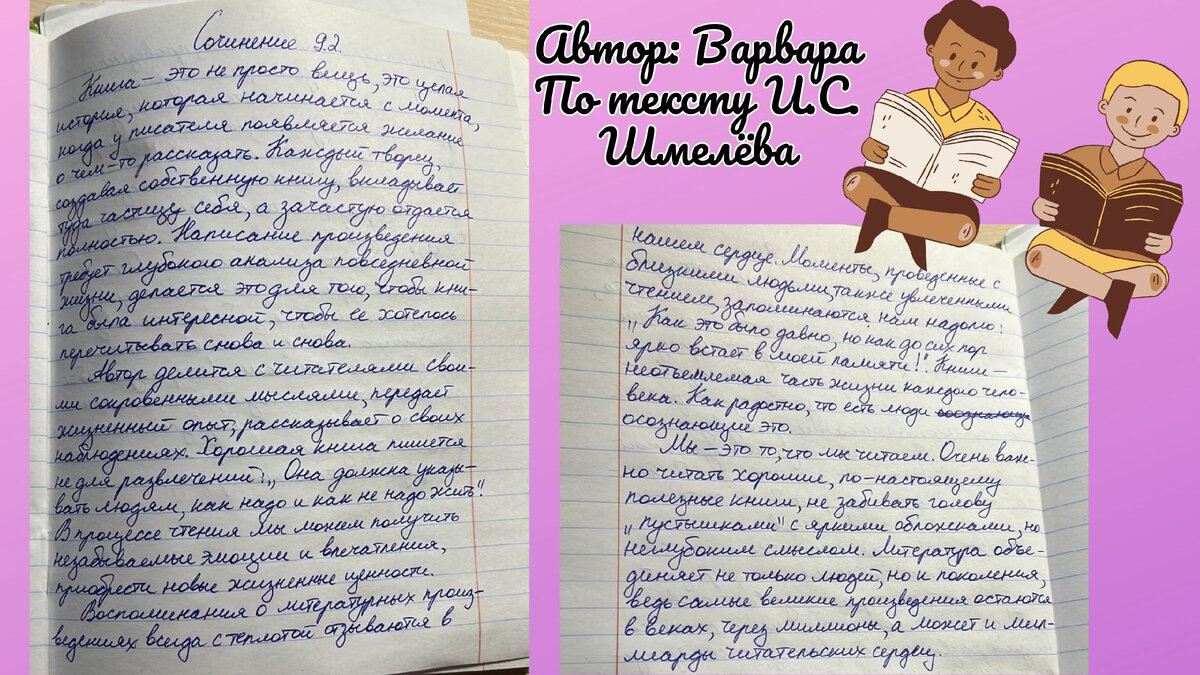 Сочинение 9.2
Книга – это не просто вещь, это целая
история, которая начинается с момента,
когда у писателя появляется желание
о чем-то рассказать. Каждый творец,
создавая собственную книгу, вкладывает
туда частицу себя, а зачастую отдается
полностью. Написание произведения
требует глубокого анализа повседневной
жизни, делается это для того, чтобы кни-
га была интересной, чтобы ее хотелось
перечитывать снова и снова.
Автор делится с читателями свои-
ми сокровенными мыслями, передает
жизненный опыт, рассказывает о своих
наблюдениях. Хорошая книга пишется
не для развлечений: „Она должна указы-
вать людям, как надо и как не надо жить".
В процессе чтения мы можем получить
незабываемые эмоции и впечатления,
приобрести новые жизненные ценности.
Воспоминания о литературных произ-
ведениях всегда с теплотой отзываются в
Автор: Варвара
По тексту И.С.
Шмелёва
нашем сердце. Моменты, проведенные с
близкими людьми, также увлеченными
чтением, запоминаются нам надолго:
„Как это было давно, но как до сих пор
ярко встает в моей памяти!" Книги –
неотъемлемая часть жизни каждого чело-
века. Как радостно, что есть люди
осознающие это.
Мы – это то, что мы читаем. Очень важ-
но читать хорошие, по-настоящему
полезные книги, не забивать голову
„пустышками" с яркими обложками, но
неглубоким смыслом. Литература объе-
диняет не только людей, но и поколения,
ведь самые великие произведения остаются
в веках, через миллионы, а может и мил-
лиарды читательских сердец.